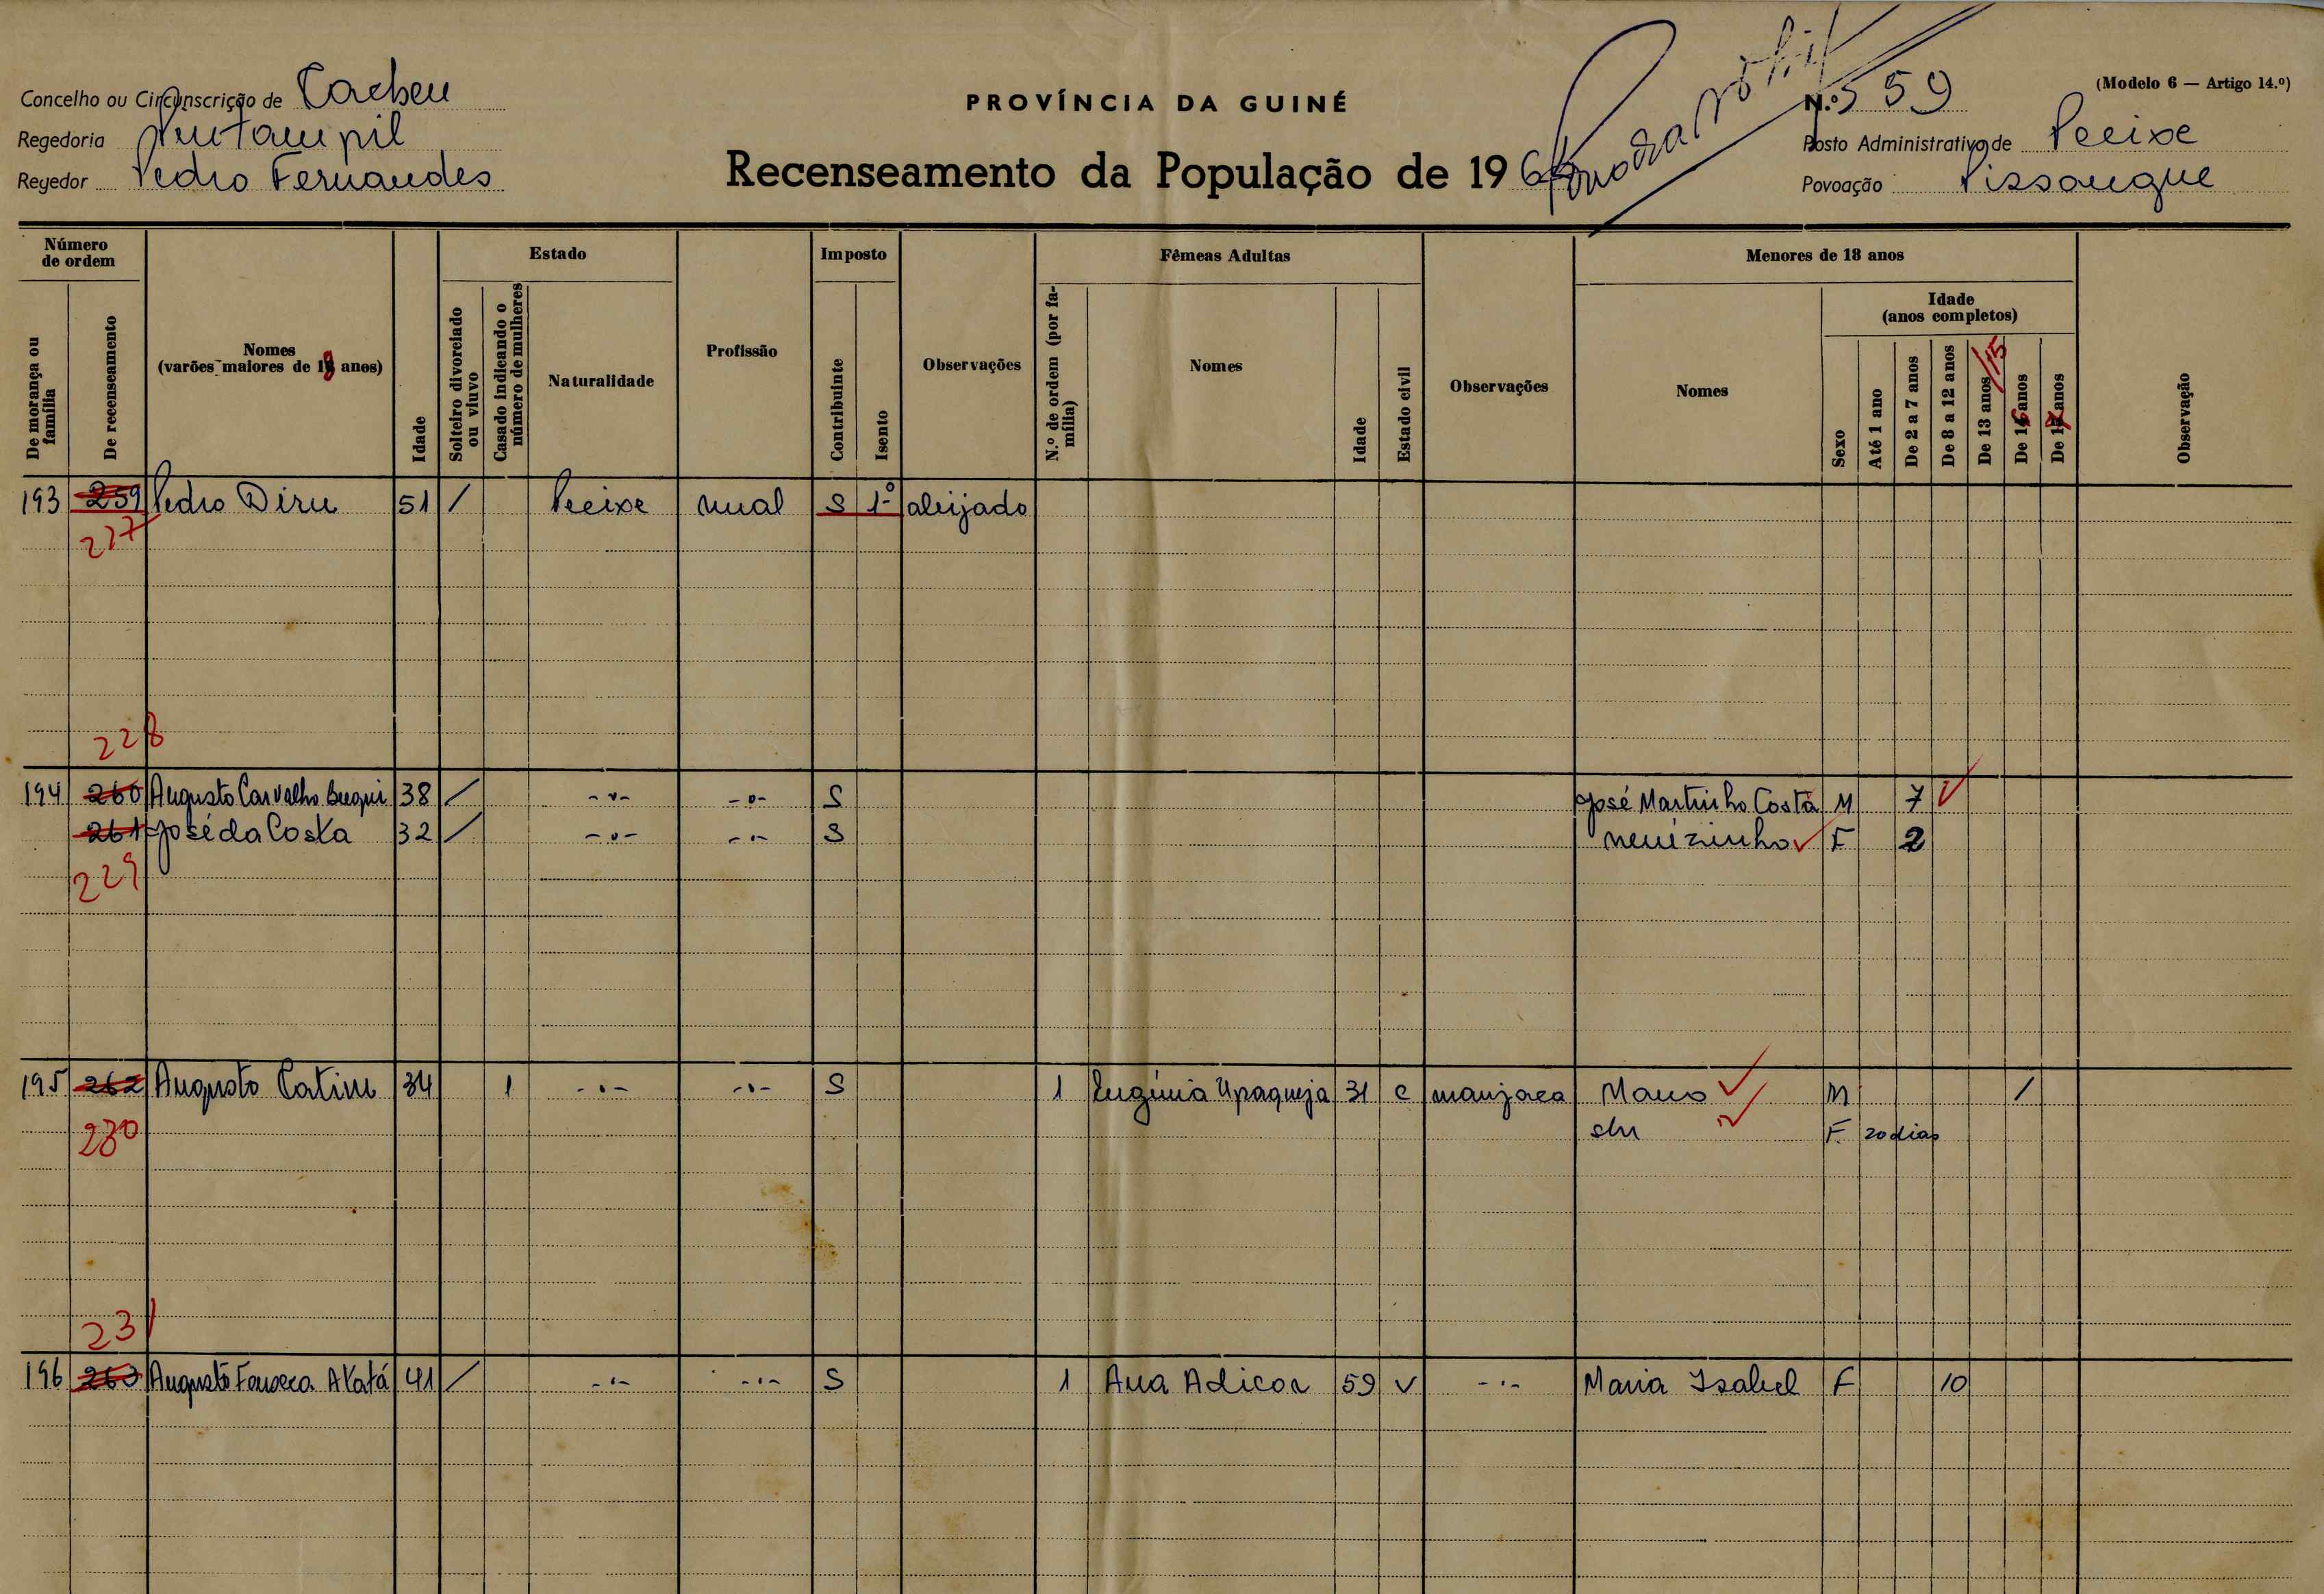 Concelho ou Circunscrição de Cacheu
Regedoria
Regedor Pedro Fernandes
PROVÍNCIA DA GUINÉ
Recenseamento da População de 196
(Modelo 6 — Artigo 14.º)
N.º 559
Posto Administrativo de Pecixe
Povoação Pissangue
Número de ordem
De morança ou família
De recenseamento
Nomes (varões maiores de 18 anos)
Idade
Estado
Solteiro divorciado ou viuvo
Casado indicando o número de mulheres
Naturalidade
Profissão
Imposto
Contribuinte
Isento
Observações
Fêmeas Adultas
N.º de ordem (por família)
Nomes
Idade
Estado civil
Observações
Menores de 18 anos
Nomes
Idade (anos completos)
Sexo
Até 1 ano
De 2 a 7 anos
De 8 a 12 anos
De 13 anos /15
De 16 anos
De 17 anos
Observação
193 259 Pedro Diru 51 / Pecixe nual S 1º aleijado
227
228
194 260 Augusto Carvalho 38 / -"- -"- S José Martinho Costa M 7
261 José da Costa 32 / -"- -"- S F 2
229
195 262 Augusto Catim 34 1 -"- -"- S 1 Eugénia Upaqueja 31 c manjaca M /
230 s/n F 20 dias
231
196 263 Augusto Fonseca Alatá 41 / -"- -"- S 1 Ana Adicor 59 v -"- Maria Isabel F 10